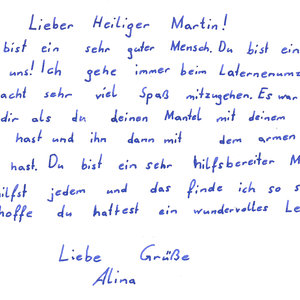 Lieber Heiliger Martin!
bist ein sehr guter Mensch. Du bist ein
uns! Ich gehe immer beim Laternenumz
acht sehr viel Spaß mitzugehen. Es war
dir als du deinen Mantel mit deinem
hast und ihn dann mit dem armen
hast. Du bist ein sehr hilfsbereiter M
hilfst jedem und das finde ich so s
hoffe du hattest ein wundervolles Le
Liebe Grüße
Alina